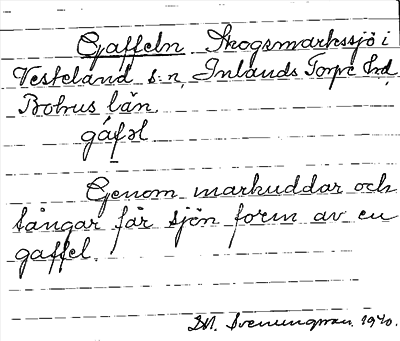 Gaffeln Skogsmarkssjö i
Vesteland s:n, Inlands Torpe hd,
Bohus län
gáfəl
Genom markuddar och
tångar får sjön form av en
gaffel.
Svenungsson. 1940.